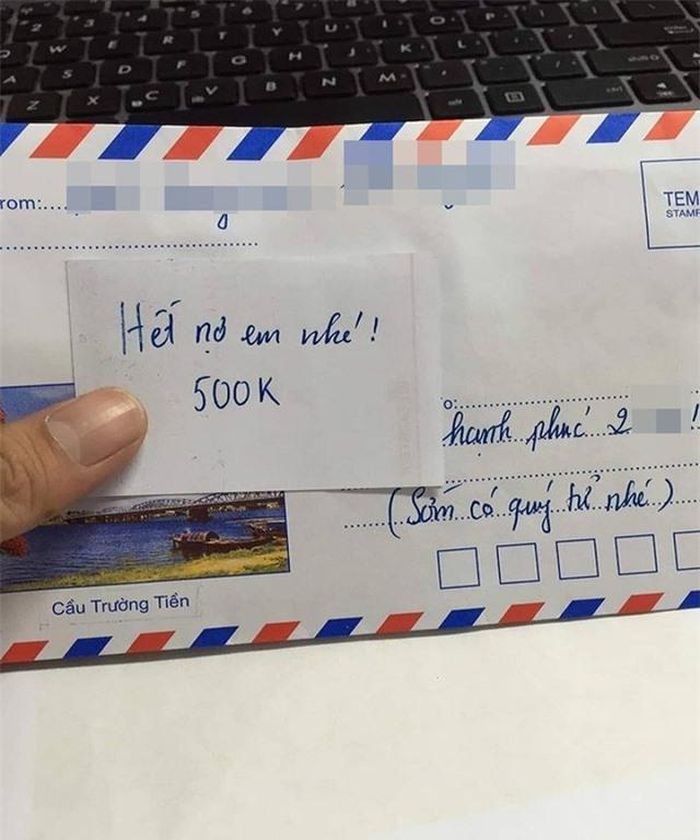 W E R T Y U I O P
A S D F G H J K L
Z X C V B N M
rom:
TEM
STAMP
Hết nợ em nhé!
500K
o:
hạnh phúc 2 !
(Sớm có quý tử nhé)
Cầu Trường Tiền